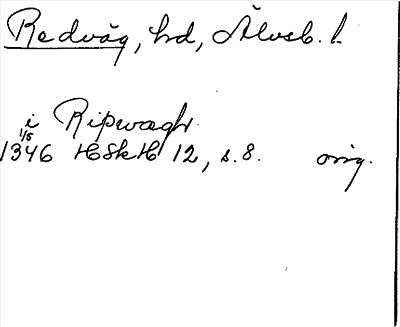 Redväg, hd, Älvsb. l.
i Ripwægh
1/5
1346 HSkH 12, s. 8. orig.